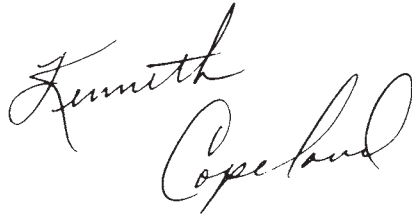 Kenneth
Copeland